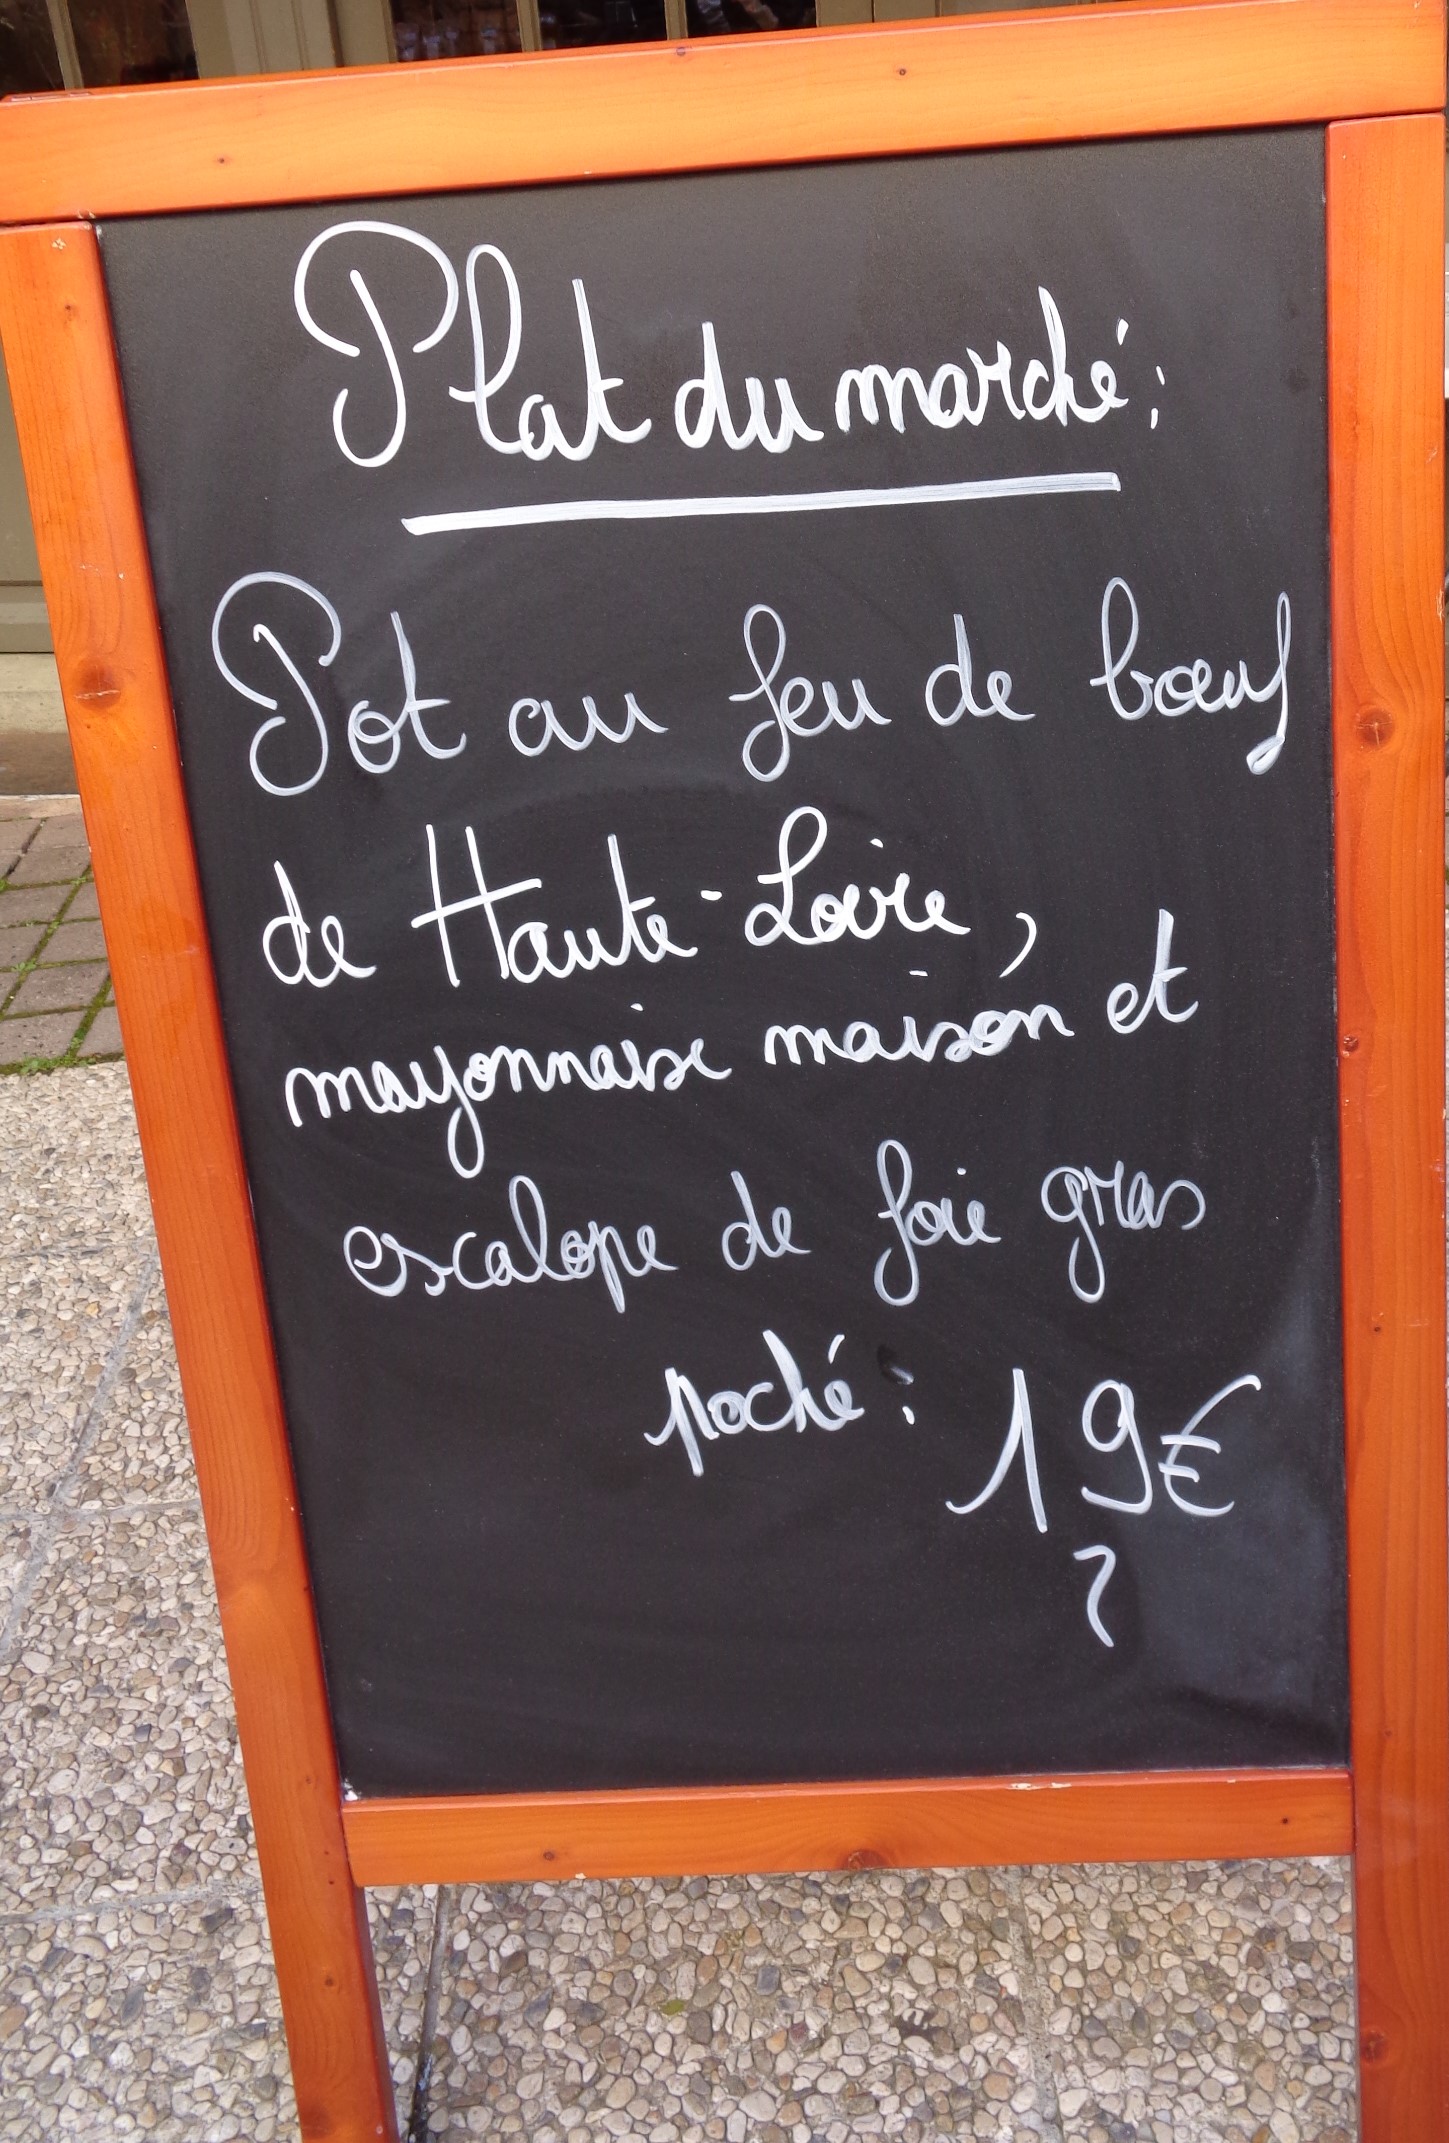 Plat du marché :
Pot au feu de bœuf
de Haute-Loire,
mayonnaise maison et
escalope de foie gras
poché : 19€